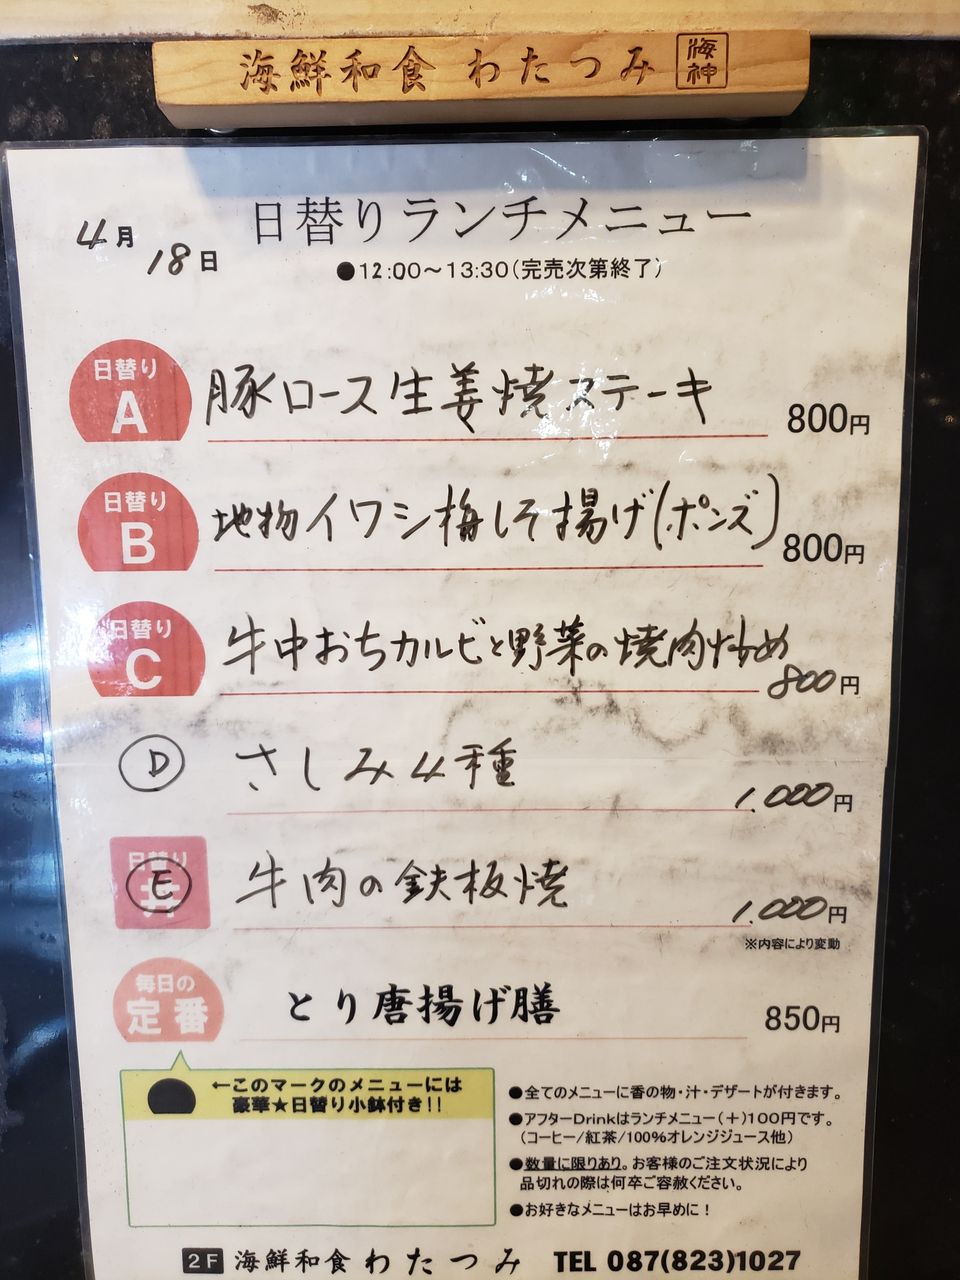 海鮮和食 わたつみ 海神
4月18日
日替りランチメニュー
●12:00～13:30(完売次第終了)
日替り A 豚ロース生姜焼ステーキ 800円
日替り B 地物イワシ梅しそ揚げ(ポンズ) 800円
日替り C 牛中おちカルビと野菜の焼肉炒め 800円
D さしみ4種 1.000円
日替り E 牛肉の鉄板焼 1.000円
※内容により変動
毎日の定番 とり唐揚げ膳 850円
←このマークのメニューには
豪華★日替り小鉢付き!!
●全てのメニューに香の物・汁・デザートが付きます。
●アフターDrinkはランチメニュー(＋)100円です。
(コーヒー/紅茶/100%オレンジジュース他)
●数量に限りあり。お客様のご注文状況により
品切れの際は何卒ご容赦ください。
●お好きなメニューはお早めに！
2F 海鮮和食 わたつみ TEL 087(823)1027